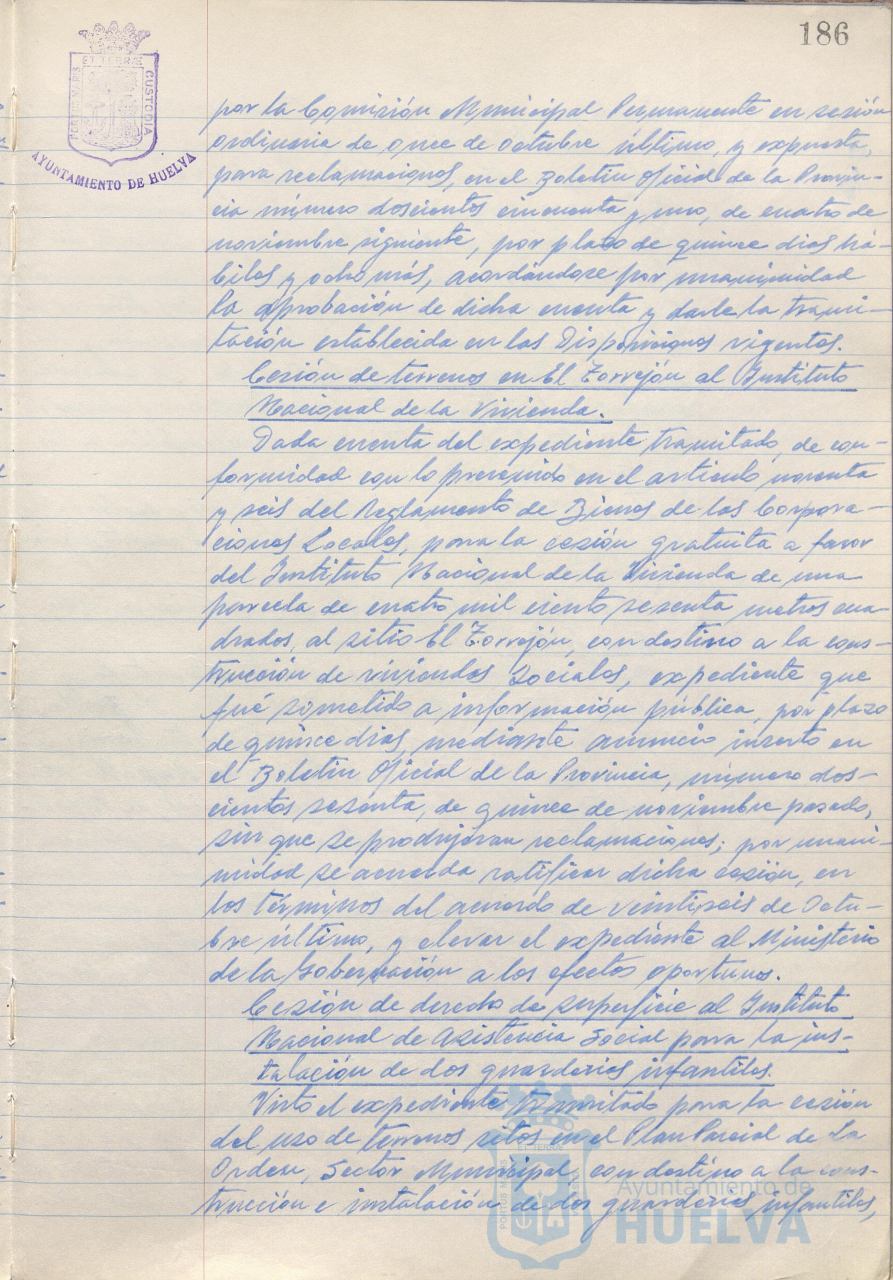 186
PORTUS MARIS
ET TERRÆ
CUSTODIA
AYUNTAMIENTO DE HUELVA
por la Comisión Municipal Permanente en sesión
ordinaria de once de Octubre último, y expuesta,
para reclamaciones, en el Boletin Oficial de la Provin-
cia número doscientos cincuenta y uno, de cuatro de
noviembre siguiente, por plazo de quince dias há-
biles y ocho más, acordándose por unanimidad
la aprobación de dicha cuenta y darle la trami-
tación establecida en las Disposiciones vigentes.
Cesión de terrenos en El Torrejón al Instituto
Nacional de la Vivienda.
Dada cuenta del expediente tramitado, de con-
formidad con lo prevenido en el articulo noventa
y seis del Reglamento de Bienes de las Corpora-
ciones Locales, para la cesión gratuita a favor
del Instituto Nacional de la Vivienda de una
parcela de cuatro mil ciento sesenta metros cua-
drados, al sitio El Torrejón, con destino a la cons-
trucción de viviendas Sociales, expediente que
fué sometido a información pública, por plazo
de quince dias, mediante anuncio inserto en
el Boletin Oficial de la Provincia, número dos-
cientos sesenta, de quince de noviembre pasado,
sin que se produjeran reclamaciones; por unani-
midad se acuerda ratificar dicha cesión, en
los términos del acuerdo de veintiseis de Octu-
bre último, y elevar el expediente al Ministerio
de la Gobernación a los efectos oportunos.
Cesión de derecho de superficie al Instituto
Nacional de Asistencia Social para la ins-
talación de dos guarderias infantiles.
Visto el expediente tramitado para la cesión
del uso de terrenos sitos en el Plan Parcial de La
Orden, Sector Municipal, con destino a la cons-
trucción e instalación de dos guarderias infantiles,
Ayuntamiento de
HUELVA